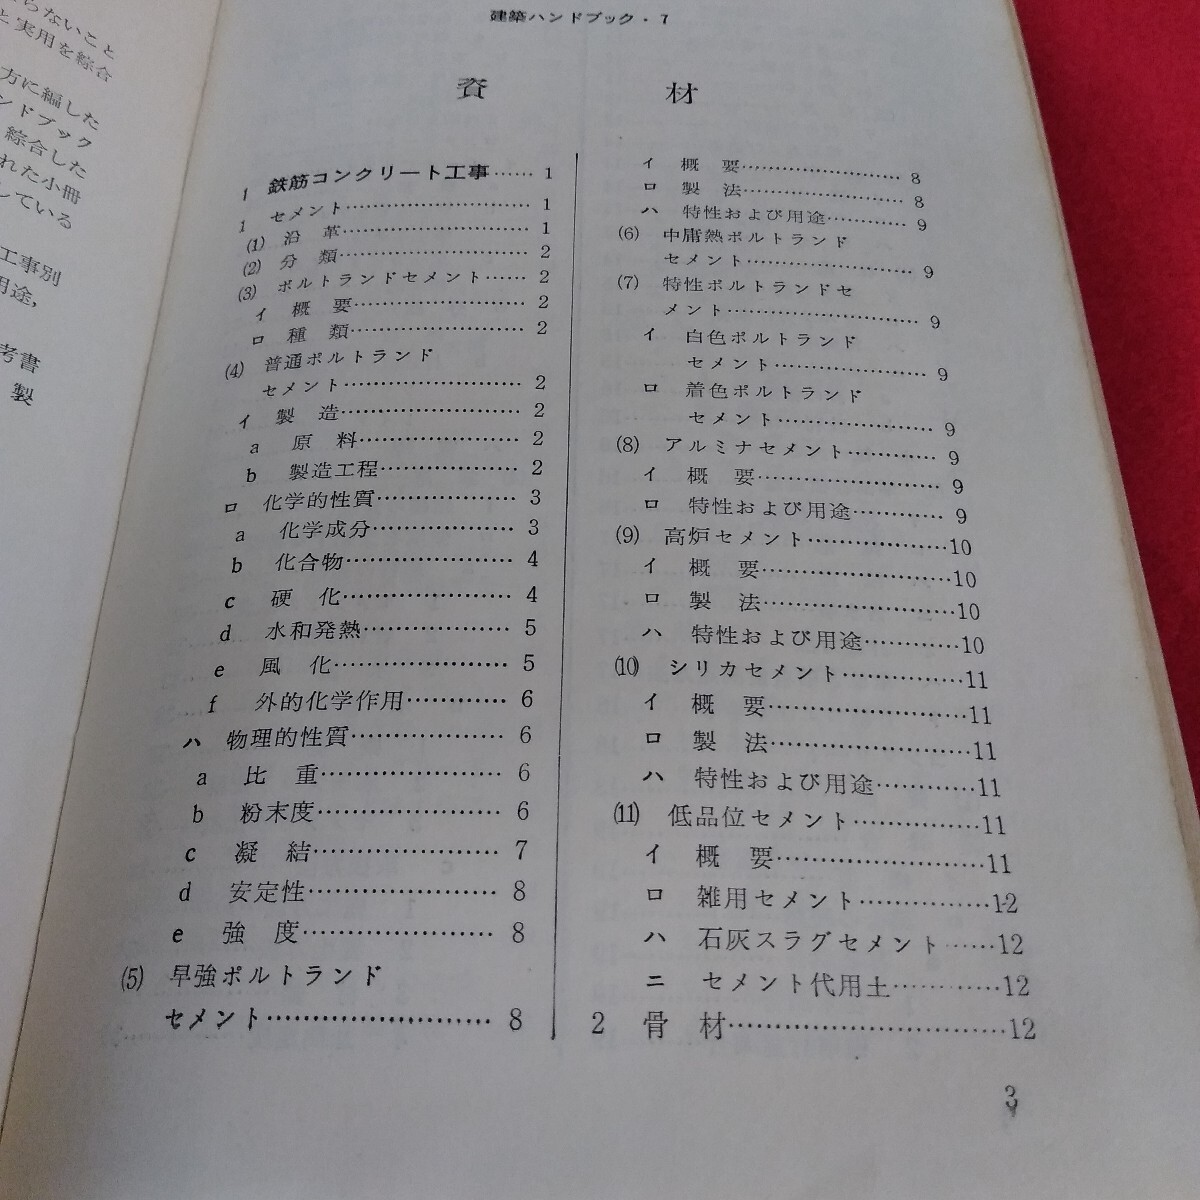 らないこと
と実用を綜合
方に編した
ンドブック
綜合した
れた小冊
している
工事別
用途,
考書
製
建築ハンドブック・7
資 材
Ⅰ 鉄筋コンクリート工事……1
1 セメント……………………1
(1) 沿 革……………………1
(2) 分 類……………………2
(3) ポルトランドセメント……2
イ 概 要……………………2
ロ 種 類……………………2
(4) 普通ポルトランド
セメント……………………2
イ 製 造……………………2
a 原 料…………………2
b 製造工程………………2
ロ 化学的性質………………3
a 化学成分………………3
b 化合物…………………4
c 硬 化…………………4
d 水和発熱………………5
e 風 化…………………5
f 外的化学作用…………6
ハ 物理的性質………………6
a 比 重…………………6
b 粉末度…………………6
c 凝 結…………………7
d 安定性…………………8
e 強 度…………………8
(5) 早強ポルトランド
セメント……………………8
イ 概 要…………………8
ロ 製 法…………………8
ハ 特性および用途…………9
(6) 中庸熱ポルトランド
セメント…………………9
(7) 特性ポルトランドセ
メント……………………9
イ 白色ポルトランド
セメント………………9
ロ 着色ポルトランド
セメント………………9
(8) アルミナセメント…………9
イ 概 要…………………9
ロ 特性および用途…………9
(9) 高炉セメント……………10
イ 概 要…………………10
ロ 製 法…………………10
ハ 特性および用途…………10
(10) シリカセメント……………11
イ 概 要…………………11
ロ 製 法…………………11
ハ 特性および用途…………11
(11) 低品位セメント……………11
イ 概 要…………………11
ロ 雑用セメント……………12
ハ 石灰スラグセメント……12
ニ セメント代用土…………12
2 骨 材…………………………12
3